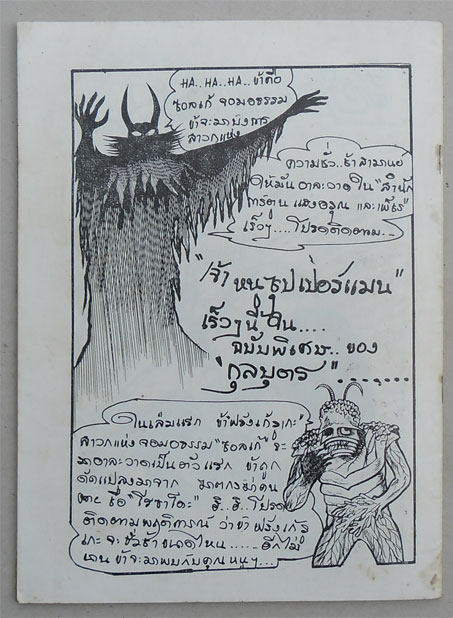 HA..HA..HA.. ข้าคือ
ซอลเก้ จอมอธรรม
ข้าจะมาบังการ
สาวกแห่ง
ความชั่ว..ช้าสามานย์
ให้มันอาละวาดใน "สำนัก
การ์ตูน แสงอรุณ และ
เร็วๆ....โปรดติดตาม..
"เจ้าหนูซุปเปอร์แมน"
เร็วๆนี้ใน....
ฉบับพิเศษ.. ของ
"กุลบุตร"......
ในเล่มแรก ข้าฟรังเก้
สาวกแห่งจอมอธรรม "ซอลเก้" จะ
มาอาละวาดเป็นตัวแรก ข้าถูก
ดัดแปลงมาจาก
ชื่อ ฮิ..ฮิ..โปรด
ติดตามพฤติการณ์ ว่าข้าฟรังเก้
เกะ จะชั่วช้าขนาดไหน...... อีกไม่
นาน ข้าจะมาพบกับคุณหนูๆ...